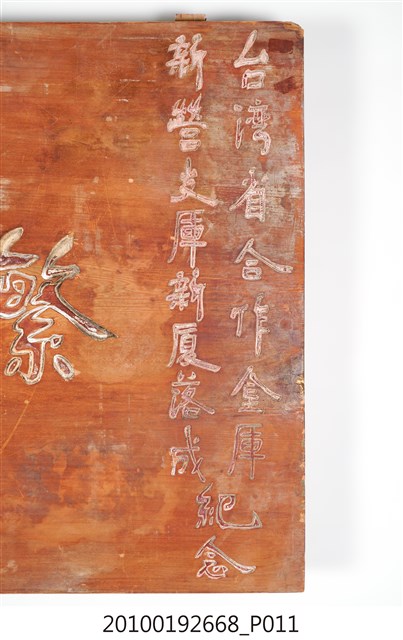 台湾省合作金庫
新營支庫新厦落成紀念
繁
20100192668_P011